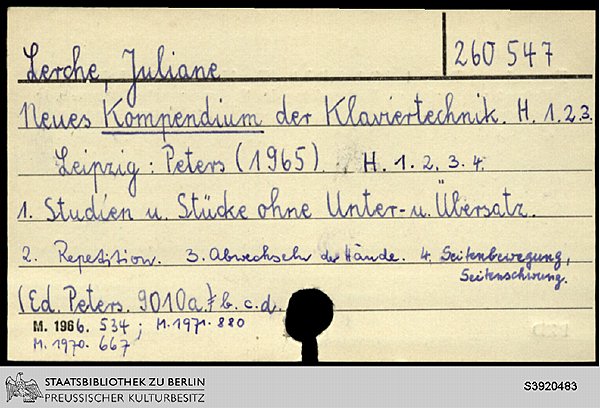 Lerche, Juliane
260 547
Neues Kompendium der Klaviertechnik. H. 1.2.3.
Leipzig: Peters (1965). H. 1. 2. 3. 4.
1. Studien u. Stücke ohne Unter- u. Übersatz.
2. Repetition. 3. Abwechseln der Hände. 4. Seitenbewegung,
Seitenschwung.
(Ed. Peters. 9010a) b. c. d.
M. 1966. 534; M. 1971. 880
M. 1970. 667
STAATSBIBLIOTHEK ZU BERLIN
PREUSSISCHER KULTURBESITZ
S3920483